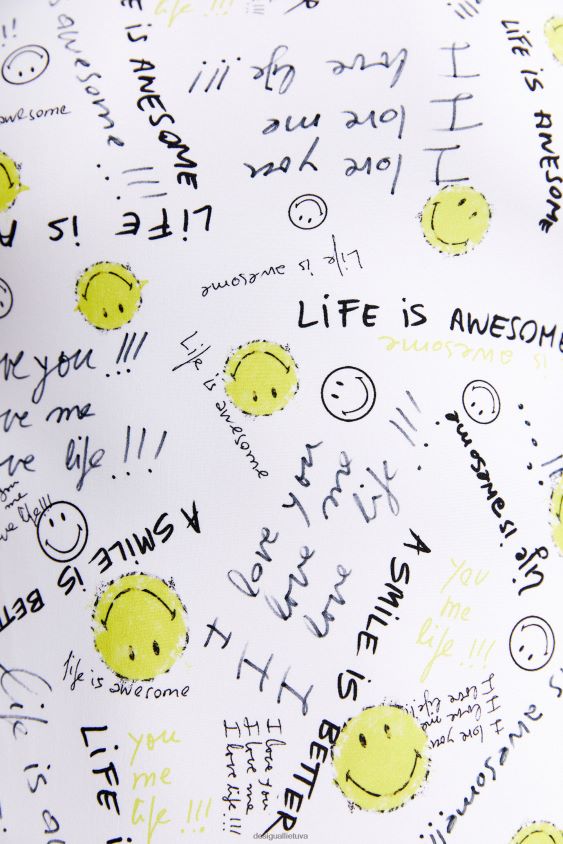 life !!!
IS AWESOME
awesome !!!
awesome
I love you
I love me
I love life !!!
LIFE IS AWESOME
LIFE IS A
Life is awesome
LIFE IS AWESOME
is awesome
Life is awesome
ve you !!!
ve me
ve life !!!
life is awesome
I love you
I love me
I love life !!!
me
ve life!!!
A SMILE IS BETTER
A SMILE IS BETTER
you
me
life !!!
life is awesome
Life is a
LIFE i
you
me
life !!!
I love you
I love me
I love life !!!
I love you
I love me
I love life !!!
is awesome!!
desiguallietuva